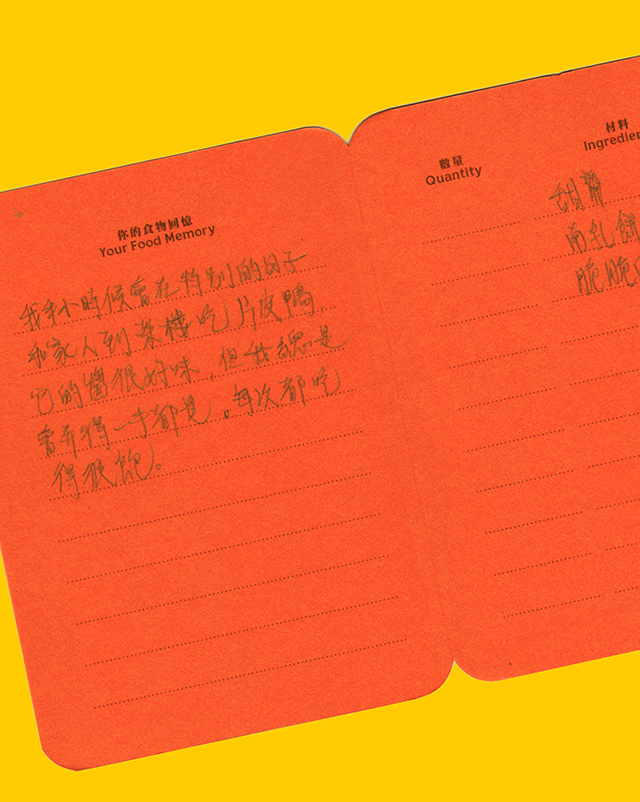 你的食物回憶
Your Food Memory
我年小時候會在特別的日子
和家人到茶樓吃片皮鴨
它的醬很好味，但我總是
會弄得一手都是。每次都吃
得很飽。
數量
Quantity
材料
Ingredien
甜醬
南乳餅
脆脆